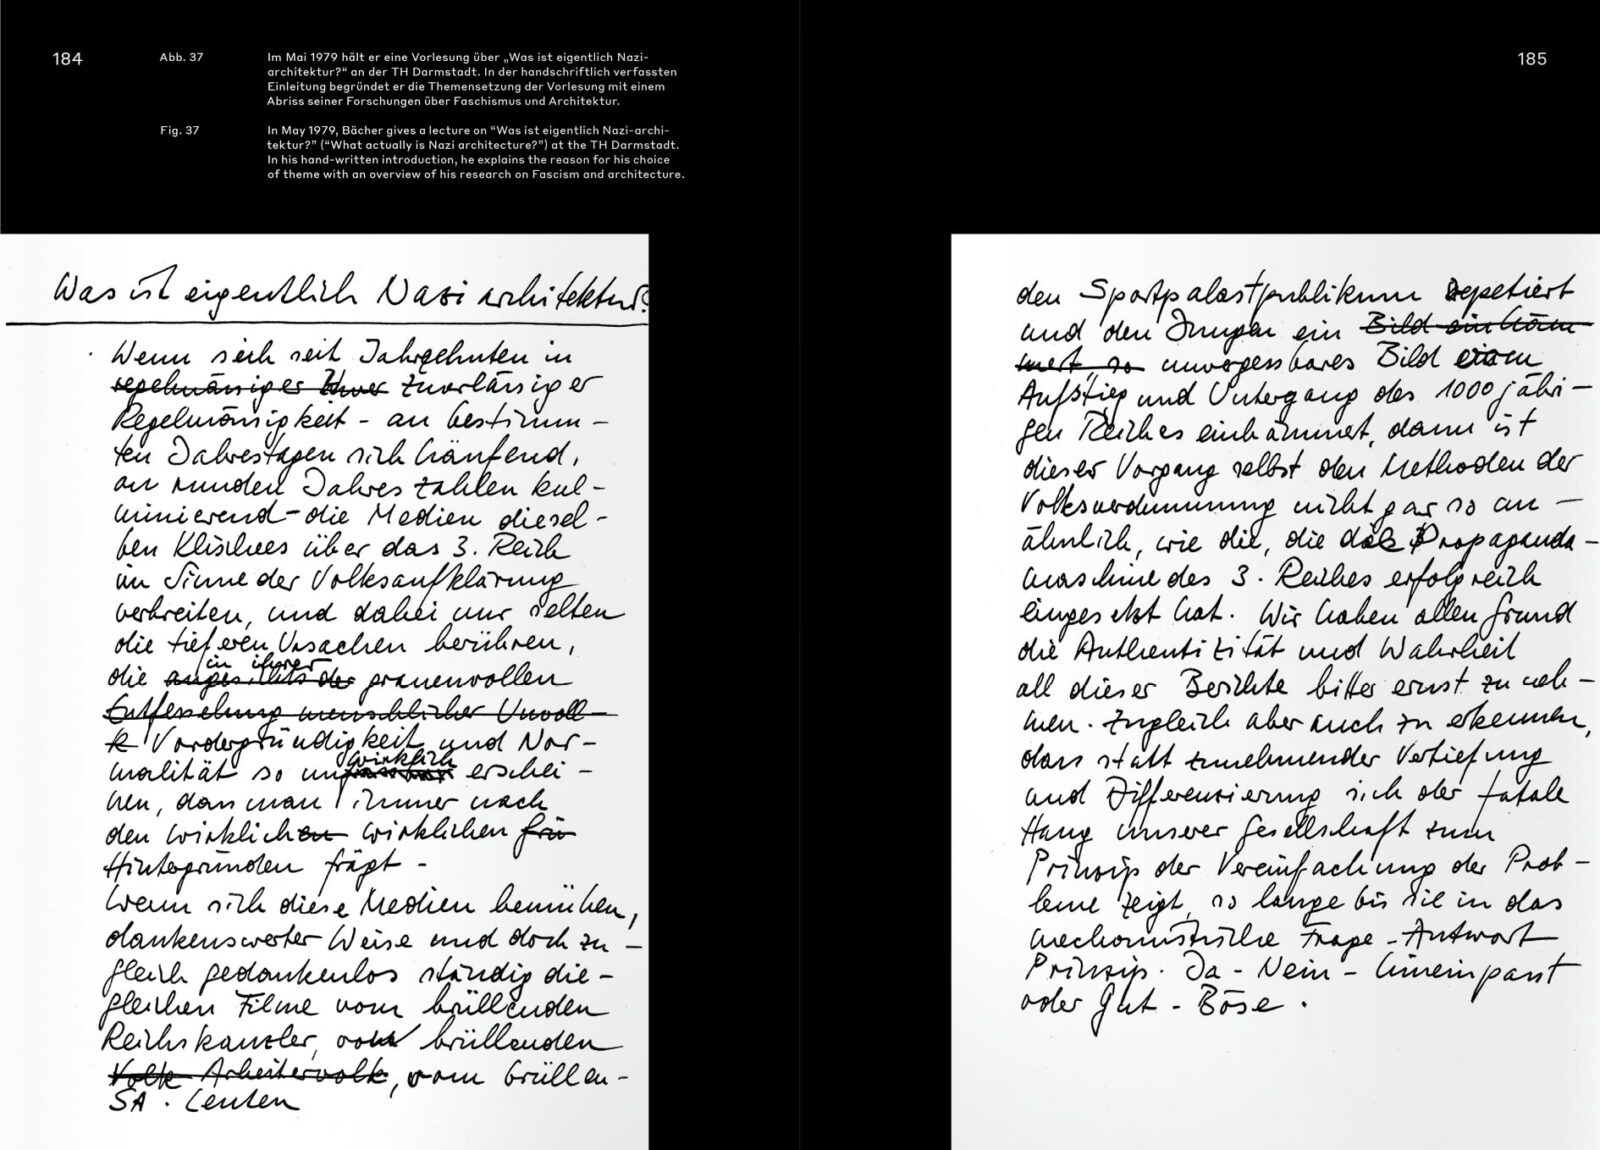 184
Abb. 37
Im Mai 1979 hält er eine Vorlesung über „Was ist eigentlich Nazi-
architektur?“ an der TH Darmstadt. In der handschriftlich verfassten
Einleitung begründet er die Themensetzung der Vorlesung mit einem
Abriss seiner Forschungen über Faschismus und Architektur.
Fig. 37
In May 1979, Bächer gives a lecture on “Was ist eigentlich Nazi-archi-
tektur?” (“What actually is Nazi architecture?”) at the TH Darmstadt.
In his hand-written introduction, he explains the reason for his choice
of theme with an overview of his research on Fascism and architecture.
Was ist eigentlich Nazi architektur?
Wenn sich seit Jahrzehnten in
regelmässiger zuverlässiger
Regelmässigkeit - an bestimm-
ten Jahrestagen sich häufend,
an runden Jahres zahlen kul-
minierend - die Medien diesel-
ben Klischees über das 3. Reich
im Sinne der Volksaufklärung
verbreiten, und dabei nur selten
die tieferen Ursachen berühren,
in ihrer
die angesichts der grauenvollen
Entfesselung menschlicher Unvoll-
k Vordergründigkeit und Nor-
wirklich
malität so un erschei-
nen, dass man immer nach
den wirklichen wirklichen für
Hintergründen frägt -
Wenn sich diese Medien bemühen,
dankenswerter Weise und doch zu-
gleich gedankenlos ständig die-
gleichen Filme vom brüllenden
Reichskanzler, vom brüllenden
Volk Arbeitervolk, vom brüllen-
SA. Leuten
185
den Sportpalastpublikum repetiert
und den Jungen ein Bild einhäm-
mert, so unvergessbares Bild
Aufstieg und Untergang des 1000 jähri-
gen Reiches einhämmert, dann ist
dieser Vorgang selbst den Methoden der
Volksverdummung nicht gar so un-
ähnlich, wie die, die die Propaganda-
maschine des 3. Reiches erfolgreich
eingesetzt hat. Wir haben allen Grund
die Authentizität und Wahrheit
all dieser Berichte bitter ernst zu neh-
men. Zugleich aber auch zu erkennen,
dass statt zunehmender Vertiefung
und Differenzierung sich der fatale
Hang unserer Gesellschaft zum
Prinzip der Vereinfachung der Prob-
leme zeigt, so lange bis sie in das
mechanistische Frage-Antwort
Prinzip. Ja - Nein - hineinpasst
oder Gut - Böse.